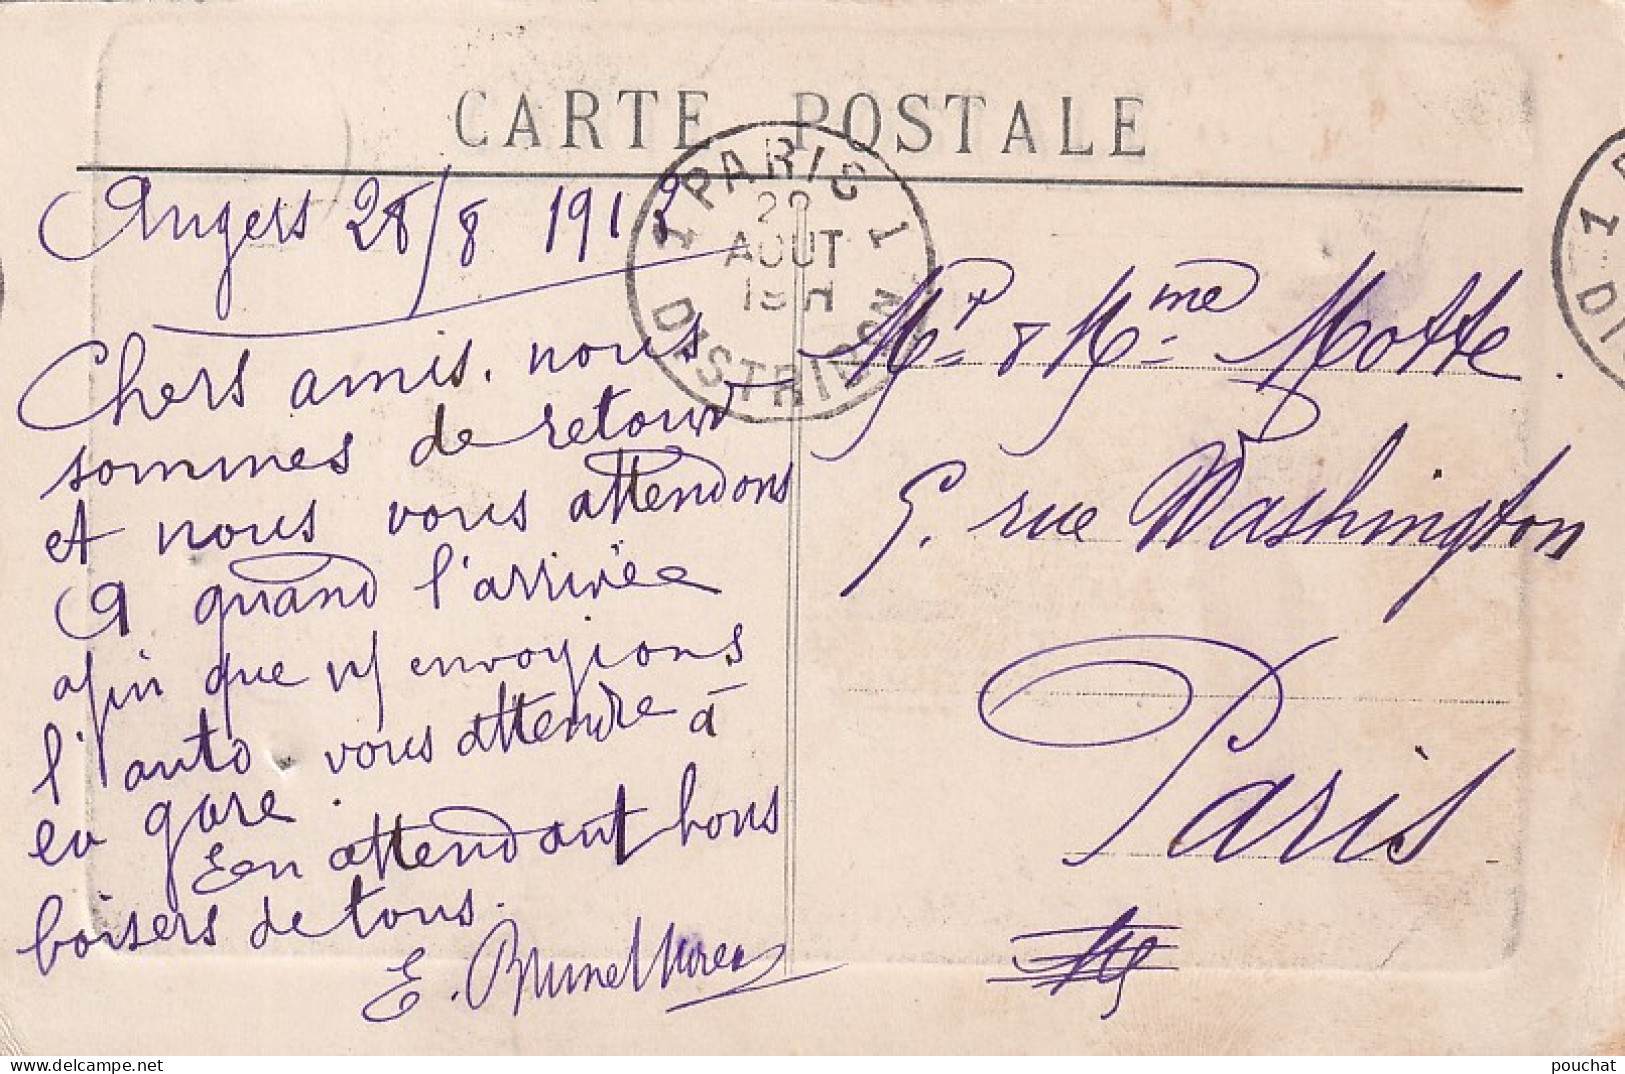 CARTE POSTALE
1 PARIS 1
AOUT
DISTRIBON
Angers 28/8 1912
Chers amis. nous
sommes de retour
et nous vous attendons
A quand l'arrivée
afin que ns envoyions
l'auto vous attendre à
la gare.
En attendant bons
baisers de tous.
E. Brunel
Mr & Mme Motte.
5. rue Washington
Paris
1
DI
pouchat